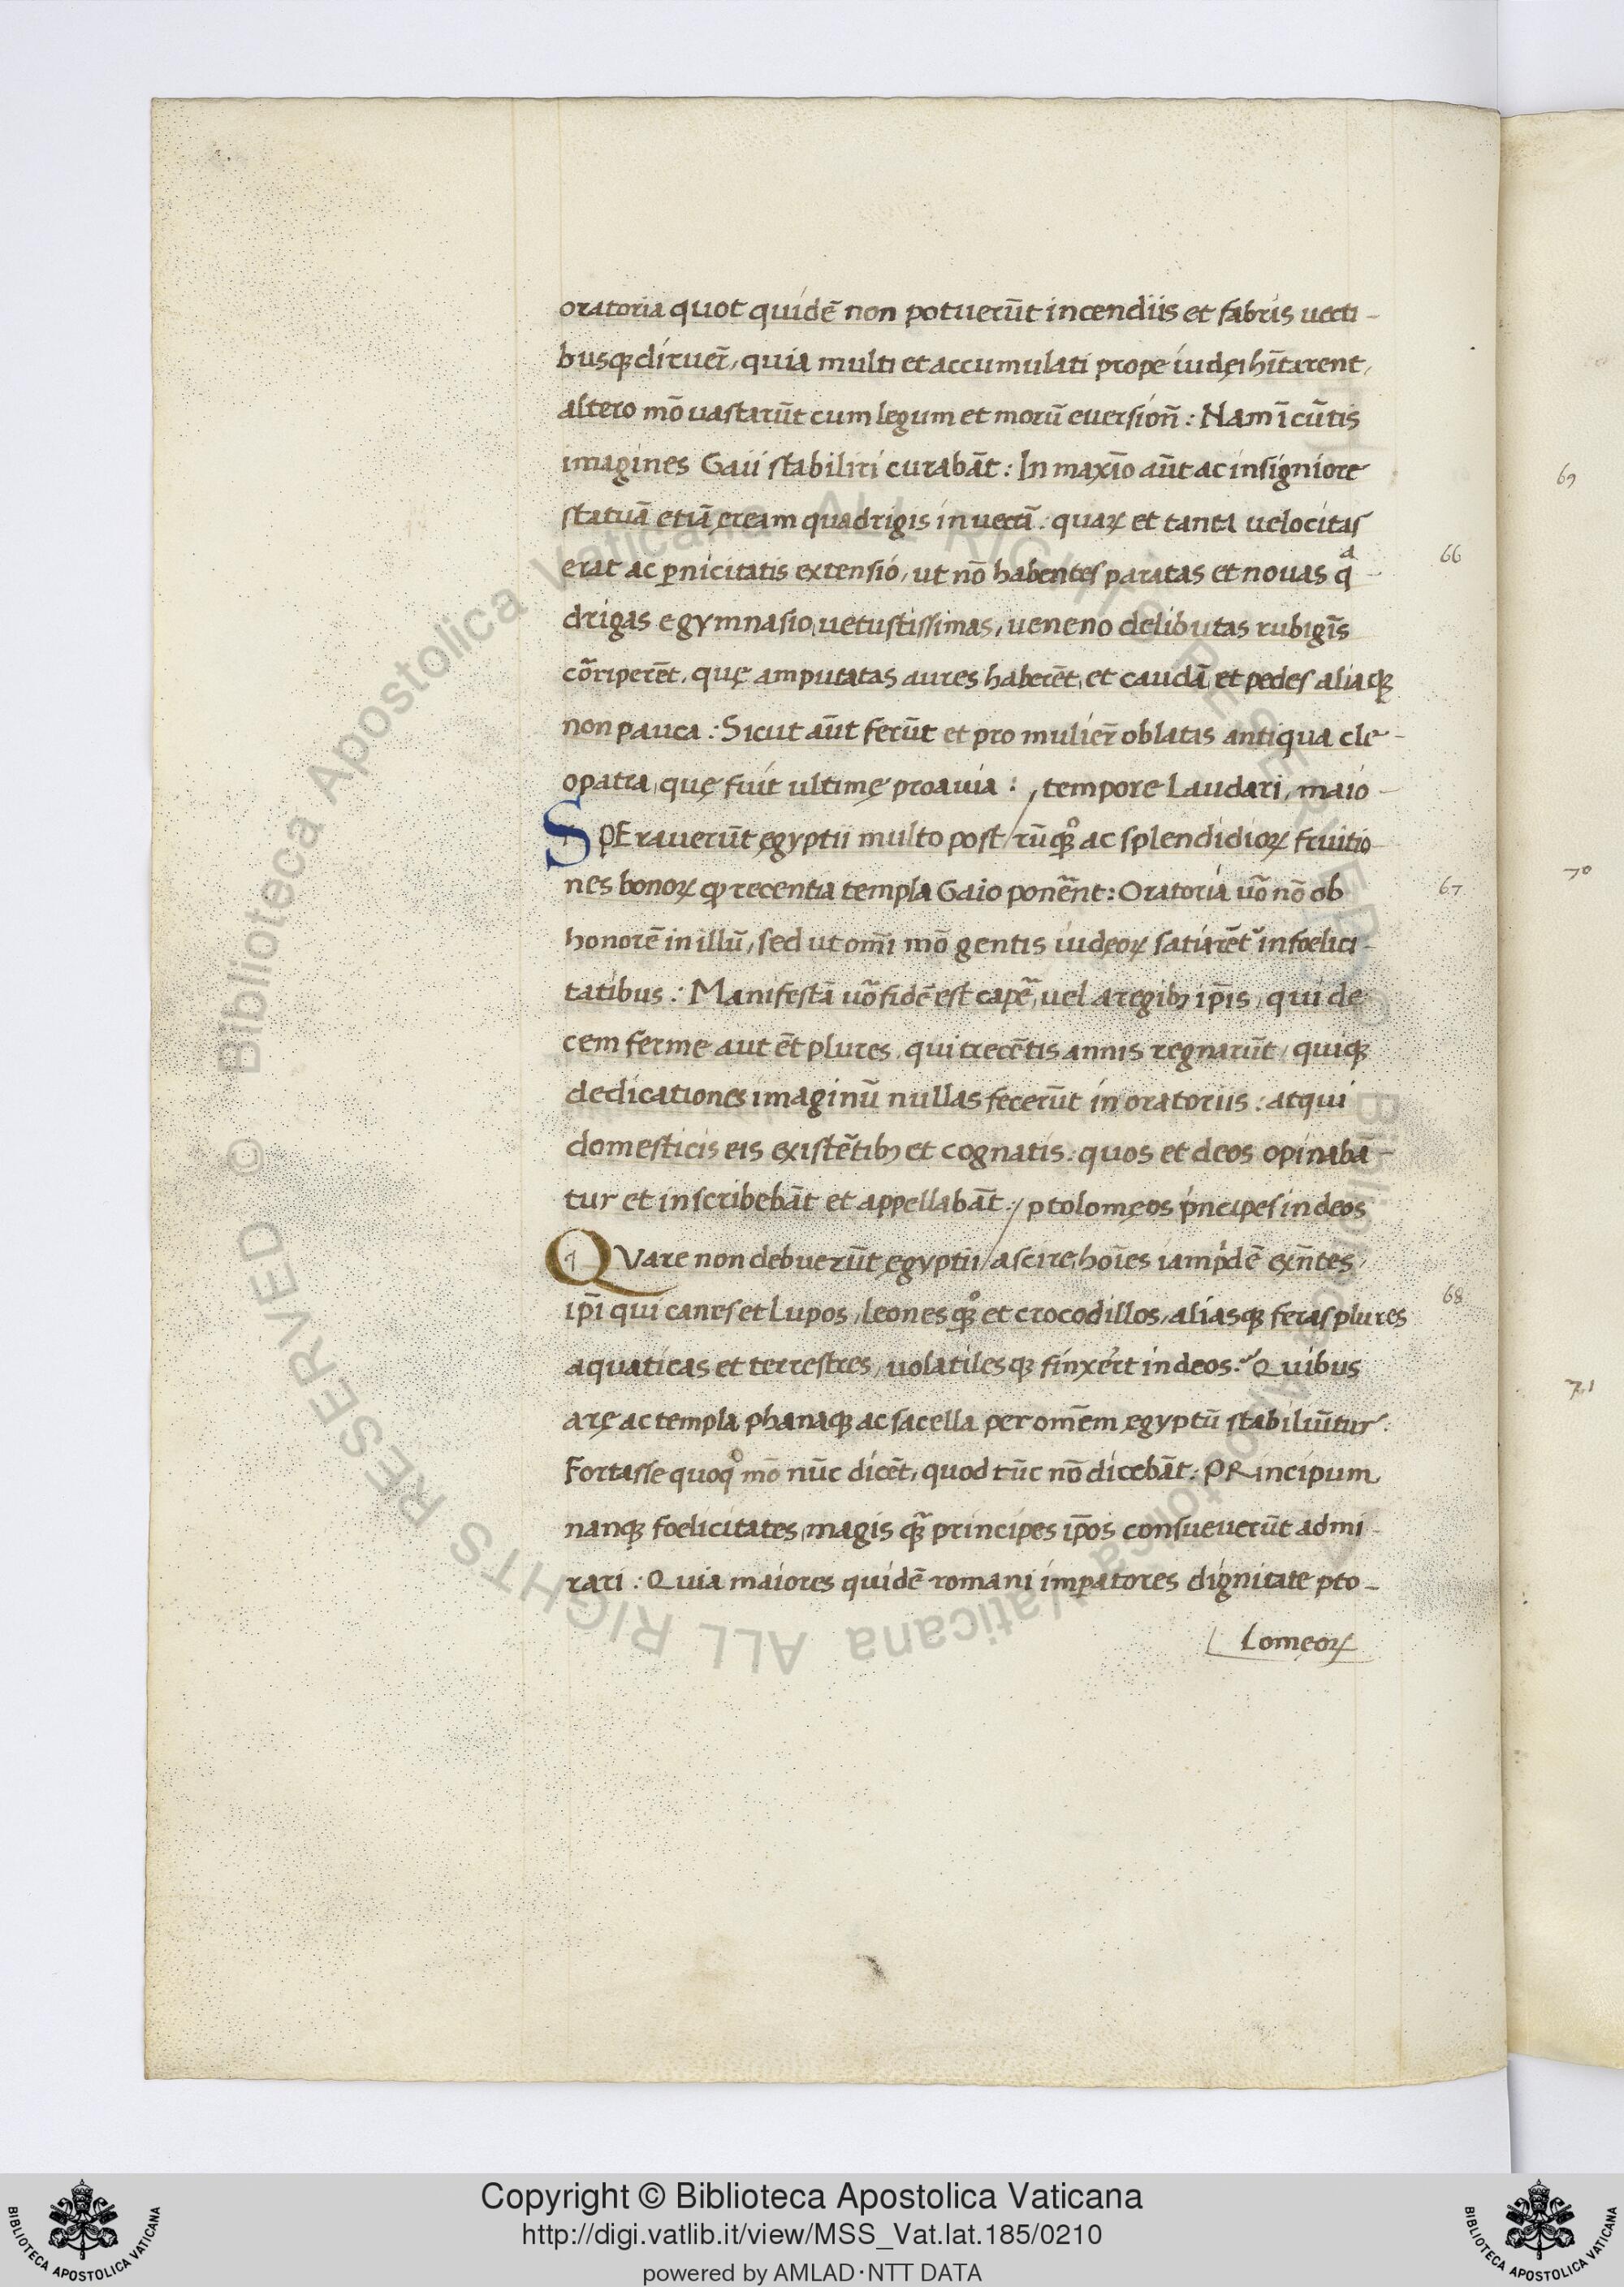 oratoria quot quidē non potuerūt incendiis et fabris uecti-
busqꝫ diruer̄, quia multi et accumulati prope iudęi hītarent,
altero mō uastarūt cum legum et morū euersion̄: Nam ī cūtis
imagines Gaii stabiliri curabāt: In maxīo aūt ac insigniore
statuā etiā ęream quadrigis inuectā: quaꝝ et tanta uelocitas
erat ac ꝑnicitatis extensio, ut nō habentes paratas et nouas qͣ-
drigas e gymnasio, uetustissimas, ueneno delibutas rubigīs
cōriperēt, quę amputatas aures haberēt, et caudā et pedes aliaqꝫ
non pauca: Sicut aūt ferūt et pro mulier̄ oblatas antiqua cle-
opatra, quę fuit ultimę proauia: / tempore laudari, maio-
SPErauerūt ęgyptii multo post / rūqꝫͦ ac splendidioꝝ fruitio
nes bonoꝝ ꝙ recentia templa Gaio ponēnt: Oratoria uō nō ob
honorē in illū, sed ut omī mō gentis iudęoꝝ satiarēt᷑ infoelici-
tatibus: Manifestā uō fidē est capē, uel a regibꝫ ip̄is, qui de
cem ferme aut ēt plures, qui trecētis annis regnarūt, quiqꝫ
dedicationes imaginū nullas fecerūt in oratoriis: atqui
domesticis eis existētibꝫ et cognatis: quos et deos opinabā-
tur et inscribebāt et appellabāt: / ptolomęos pͥncipes in deos
QVare non debuerūt ęgyptii / ascire, hoīes iampͥdē exn̄tes,
ip̄i qui canes et lupos, leonesqꝫͦ et crocodillos, aliasqꝫ feras plures
aquaticas et terrestres, uolatilesqꝫ finxer̄t in deos: Quibus
arę ac templa phanaqꝫ ac sacella per omēm ęgyptū stabiliūtur:
Fortasse quoqͦ mō nūc dicēt, quod tūc nō dicebāt: PRincipum
nanqꝫ foelicitates, magis qꝫ̄ principes ip̄os consueuerūt admi-
rari: Quia maiores quidē romani imꝑatores dignitate pto-
lomęoꝝ
66
67
68
69
70
71
© Biblioteca Apostolica Vaticana ALL RIGHTS RESERVED © Biblioteca Apostolica Vaticana ALL RIGHTS RESERVED
Copyright © Biblioteca Apostolica Vaticana
http://digi.vatlib.it/view/MSS_Vat.lat.185/0210
powered by AMLAD·NTT DATA
BIBLIOTECA APOSTOLICA VATICANA
BIBLIOTECA APOSTOLICA VATICANA